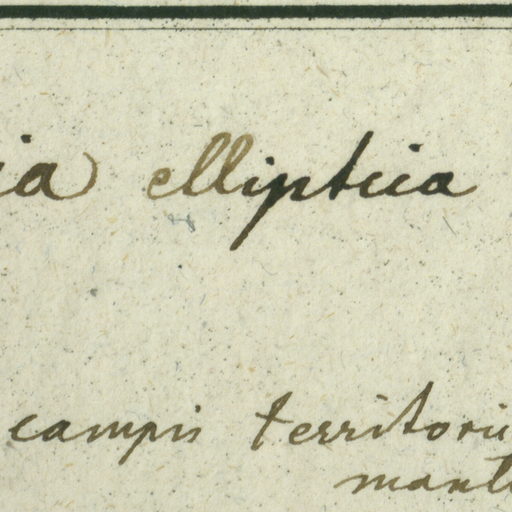 ia elliptica
campis territorii
mant